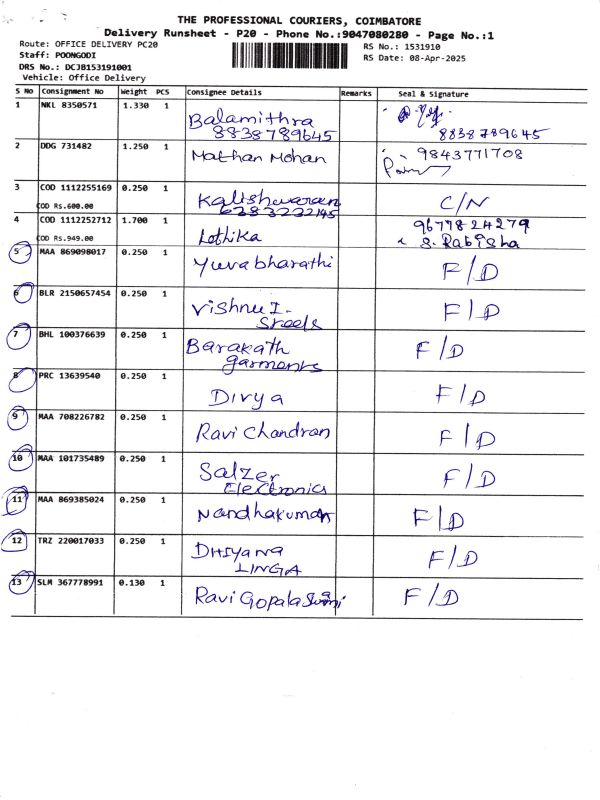 THE PROFESSIONAL COURIERS, COIMBATORE
Delivery Runsheet - P20 - Phone No.:9047080280 - Page No.:1
Route: OFFICE DELIVERY PC20
RS No.: 1531910
Staff: POONGODI
RS Date: 08-Apr-2025
DRS No.: DCJB153191001
Vehicle: Office Delivery
S No Consignment No Weight PCS Consignee Details Remarks Seal & Signature
1 NKL 8350571 1.330 1 Balamithra
8838789645 8838789645
2 DDG 731482 1.250 1 Mathan Mohan 9843771708
3 COD 1112255169 0.250 1 Kalishwaran C/N
COD Rs.600.00 6283232145
4 COD 1112252712 1.700 1 Lothika 9677824279
COD Rs.949.00 S. Rabisha
5 MAA 869098017 0.250 1 Yuvabharathi F/D
6 BLR 2150657454 0.250 1 Vishnu I. F/D
Steels
7 BHL 100376639 0.250 1 Barakath F/D
garments
8 PRC 13639540 0.250 1 Divya F/D
9 MAA 708226782 0.250 1 Ravi Chandran F/D
10 MAA 101735489 0.250 1 Salzer F/D
Electronics
11 MAA 869385024 0.250 1 Nandhakumar F/D
12 TRZ 220017033 0.250 1 Dhiyana F/D
LINGA
13 SLM 367778991 0.130 1 Ravi Gopalaswami F/D